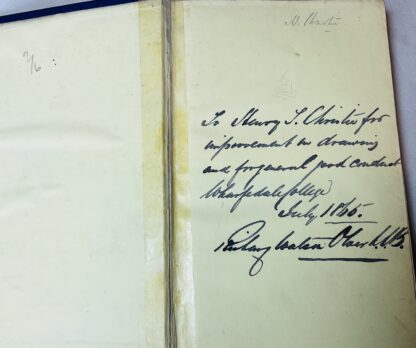 2/6
H. Christie
To Henry S. Christie for
improvement in drawing
and for general good conduct
Wharfedale College
July 1865.
Watson